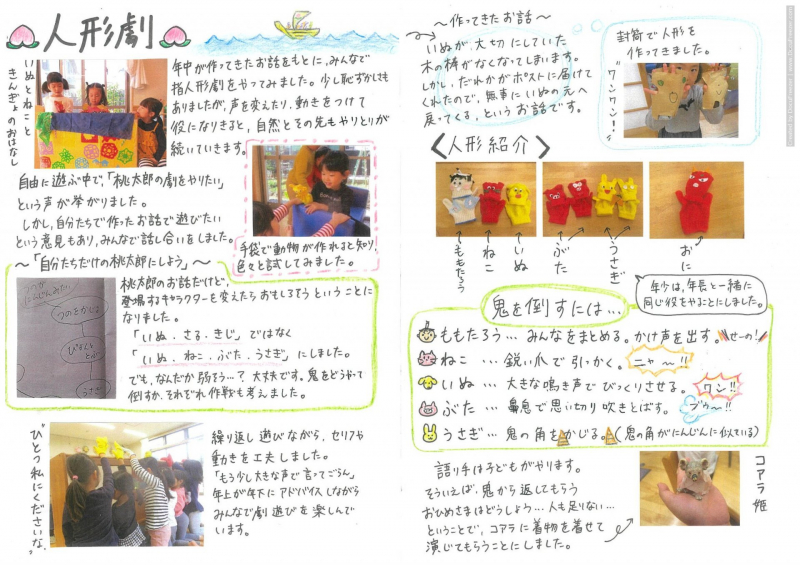 人形劇
いぬとねこと
きんぎょのおはなし
年中が作ってきたお話をもとに、みんなで
指人形劇をやってみました。少し恥ずかしさも
ありましたが、声を変えたり、動きをつけて
役になりきると、自然とその先もやりとりが
続いていきます。
自由に遊ぶ中で、「桃太郎の劇をやりたい」
という声が挙がりました。
しかし、自分たちで作ったお話で遊びたい
という意見もあり、みんなで話し合いをしました。
手袋で動物が作れると知り、
色々と試してみました。
～「自分たちだけの桃太郎にしよう」～
つのがにんじんみたい
つのをかじる
うさぎ
桃太郎のお話だけど、
登場するキャラクターを変えたらおもしろそうということに
なりました。
「いぬ・さる・きじ」ではなく
「いぬ・ねこ・ぶた・うさぎ」にしました。
でも、なんだか弱そう…？大丈夫です。鬼をどうやって
倒すか、それぞれ作戦も考えました。
"ひとつ私にくださいな"
繰り返し遊びながら、セリフや
動きを工夫しました。
「もう少し大きな声で言ってごらん」
年上が年下にアドバイスしながら
みんなで劇遊びを楽しんで
います。
～作ってきたお話～
いぬが、大切にしていた
木の棒がなくなってしまいます。
しかし、だれかがポストに届けて
くれたので、無事にいぬの元へ
戻ってくる、というお話です。
封筒で人形を
作ってきました。
"ワンワン！"
〈人形紹介〉
ももたろう
ねこ
いぬ
ぶた
うさぎ
おに
年少は、年長と一緒に
同じ役をやることにしました。
鬼を倒すには…
ももたろう…みんなをまとめる。かけ声を出す。せーの！
ねこ…鋭い爪で引っかく。ニャ～!!
いぬ…大きな鳴き声でびっくりさせる。ワン!!
ぶた…鼻息で思い切り吹きとばす。ブゥ～!!
うさぎ…鬼の角をかじる。(鬼の角がにんじんに似ている)
語り手は子どもがやります。
そういえば、鬼から返してもらう
おひめさまはどうしよう…人も足りない…
ということで、コアラに着物を着せて
演じてもらうことにしました。
コアラ姫